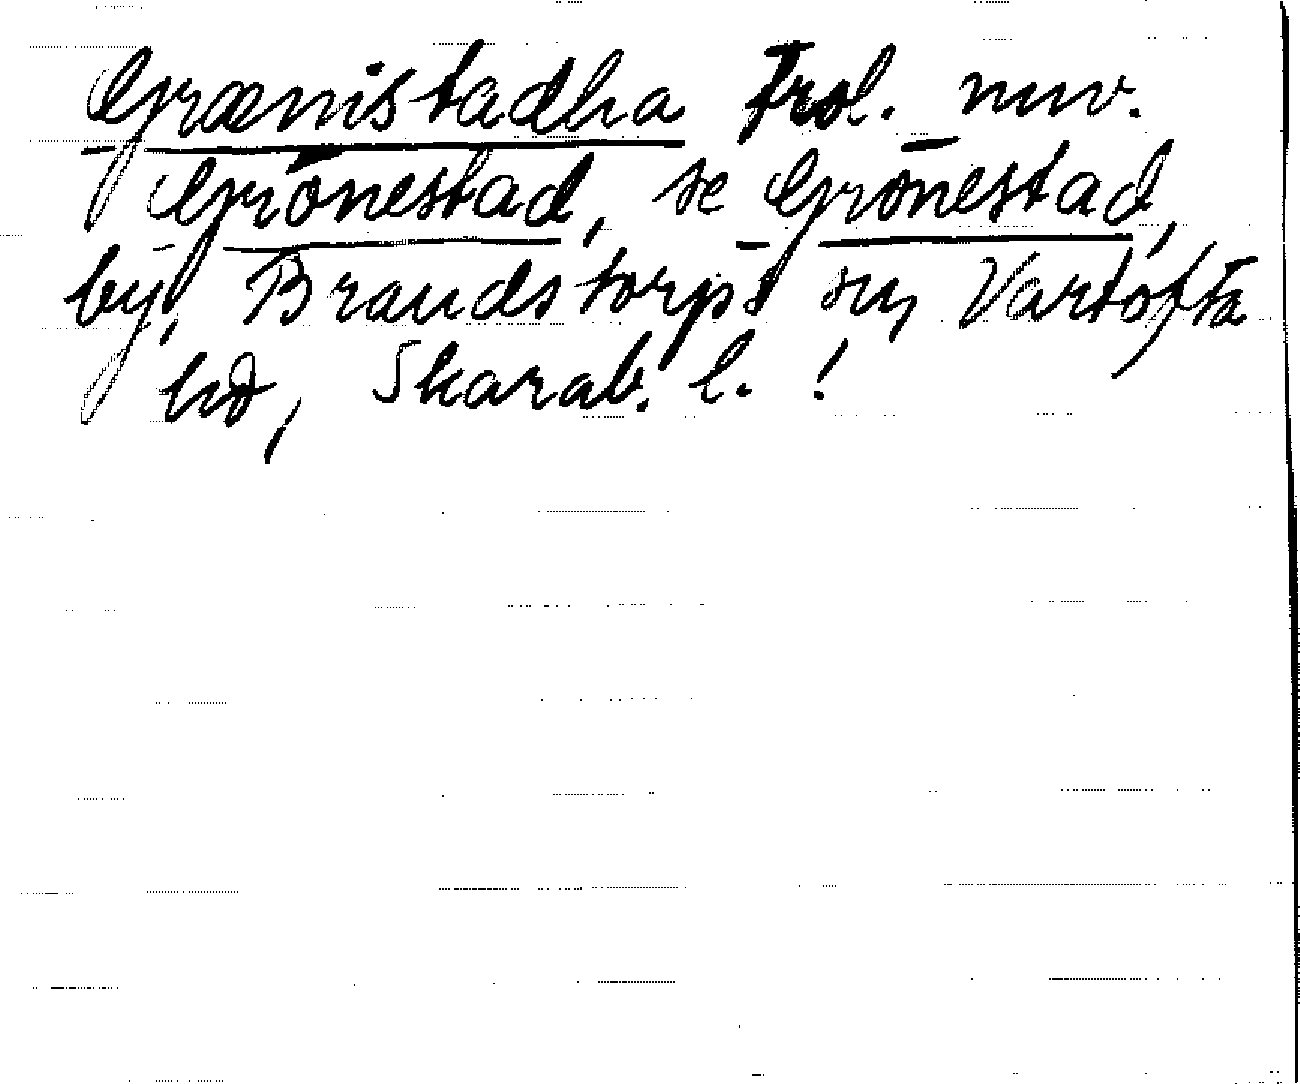 Grænistadha Frsl. nuv.
Grönestad, se Grönestad,
by, Brandstorps sn, Vartofta
hd, Skarab. l. !